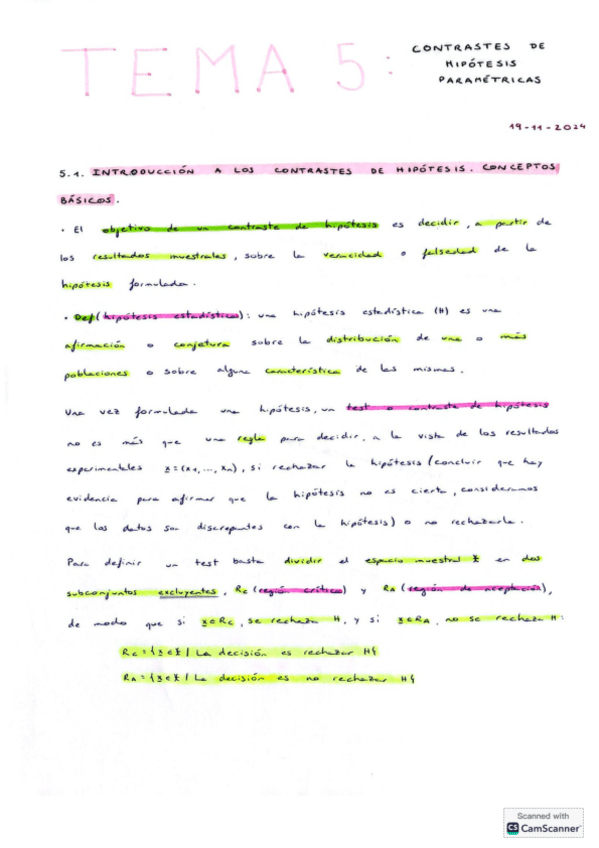 TEMA 5:
CONTRASTES DE
HIPÓTESIS
PARAMÉTRICAS
19-11-2024
5.1. INTRODUCCIÓN A LOS CONTRASTES DE HIPÓTESIS. CONCEPTOS
BÁSICOS.
· El objetivo de un contraste de hipótesis es decidir, a partir de
los resultados muestrales, sobre la veracidad o falsedad de la
hipótesis formulada.
· Def(hipótesis estadística): una hipótesis estadística (H) es una
afirmación o conjetura sobre la distribución de una o más
poblaciones o sobre alguna característica de las mismas.
Una vez formulada una hipótesis, un test o contraste de hipótesis
no es más que una regla para decidir, a la vista de los resultados
experimentales x=(x1,...,xn), si rechazar la hipótesis (concluir que hay
evidencia para afirmar que la hipótesis no es cierta, consideramos
que los datos son discrepantes con la hipótesis) o no rechazarla.
Para definir un test basta dividir el espacio muestral X en dos
subconjuntos excluyentes, Rc (región crítica) y RA (región de aceptación),
de modo que si x∈Rc, se rechaza H, y si x∈RA, no se rechaza H:
Rc={x∈X/ La decisión es rechazar H}
RA={x∈X/ La decisión es no rechazar H}
Scanned with
CS CamScanner